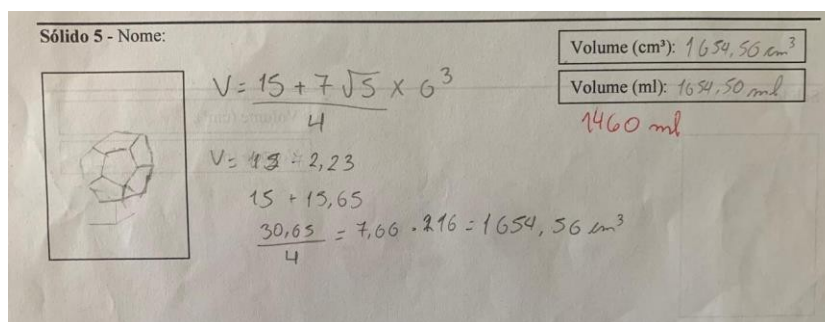 Sólido 5 - Nome:
Volume (cm³): 1654,56 cm³
Volume (ml): 1654,50 ml
1460 ml
V = 15 + 7 √5 x 6³
4
V = 2,23
15 + 15,65
30,65 = 7,66 . 216 = 1654,56 cm³
4